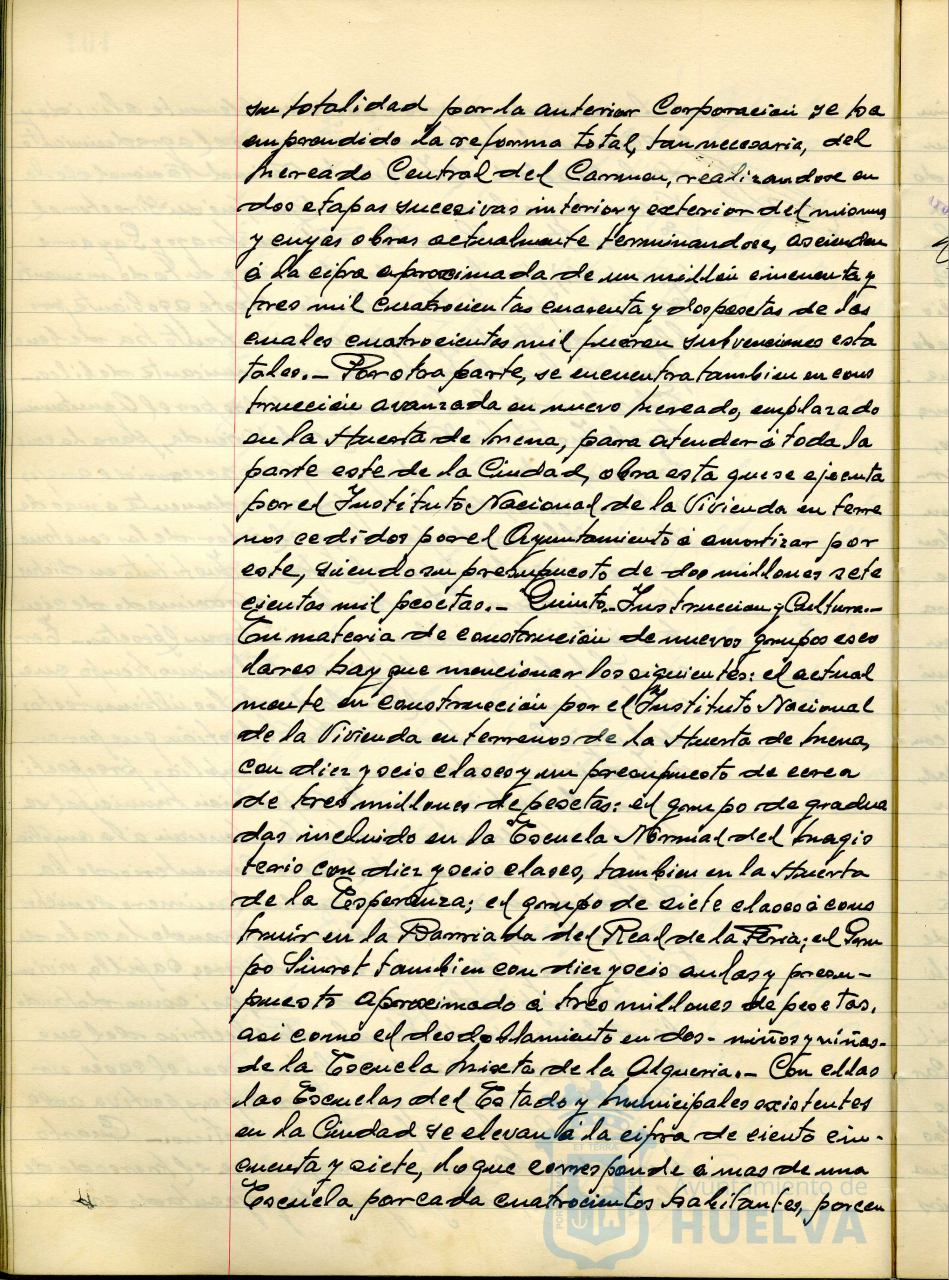 su totalidad por la anterior Corporación se ha
emprendido la reforma total, tan necesaria, del
Mercado Central del Carmen, realizandose en
dos etapas sucesivas interior y exterior del mismo,
y cuyas obras actualmente terminandose, ascienden
á la cifra aproximada de un millón cincuenta y
tres mil cuatrocientas cuarenta y dos pesetas de las
cuales cuatrocientas mil fueron subvenciones esta
tales.- Por otra parte, se encuentra tambien en cons
trucción avanzada un nuevo Mercado, emplazado
en la Huerta de Mena, para atender á toda la
parte este de la Ciudad, obra esta que se ejecuta
por el Instituto Nacional de la Vivienda en terre
nos cedidos por el Ayuntamiento á amortizar por
este, siendo su presupuesto de dos millones sete
cientas mil pesetas.- Quinto.- Instruccion y Cultura.-
En materia de construcción de nuevos grupos esco
lares hay que mencionar los siguientes: el actual
mente en construcción por el Instituto Nacional
de la Vivienda en terrenos de la Huerta de Mena,
con diez y ocio clases y un presupuesto de cerca
de tres millones de pesetas: el grupo de gradua
das incluido en la Escuela Normal del Magis
terio con diez y ocio clases, tambien en la Huerta
de la Esperanza; el grupo de siete clases á cons
truir en la Barriada del Real de la Feria; el Gru
po Siurot tambien con diez y ocio aulas y presu-
puesto aproximado á tres millones de pesetas,
asi como el desdoblamiento en dos- niños y niñas-
de la Escuela Mixta de la Alqueria.- Con ellas
las Escuelas del Estado y Municipales existentes
en la Ciudad se elevan á la cifra de ciento cin-
cuenta y siete, lo que corresponde á mas de una
Escuela por cada cuatrocientos habitantes, porcen
Ayuntamiento de
HUELVA